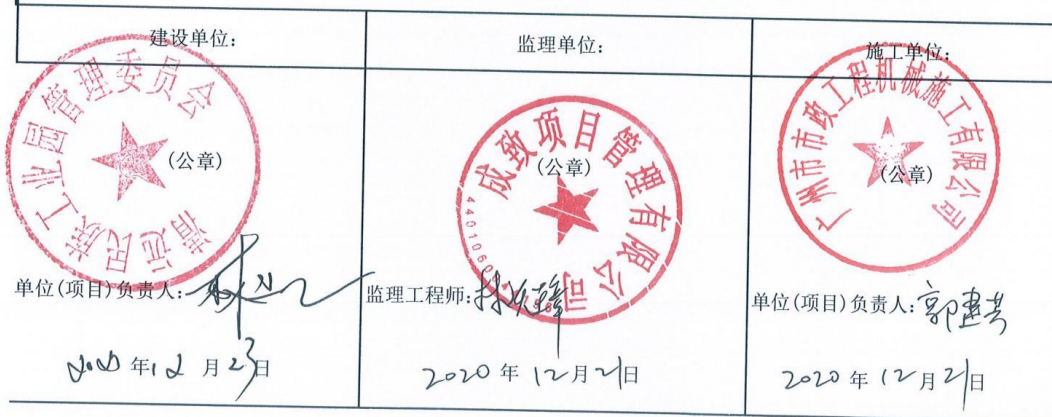 建设单位:
监理单位:
施工单位:
清远民族工业园管理委员会
(公章)
成致项目管理有限公司
(公章)
广州市市政工程机械施工有限公司
(公章)
单位(项目)负责人:
监理工程师:
单位(项目)负责人:郭建芸
2020年12月23日
2020年12月21日
2020年12月21日